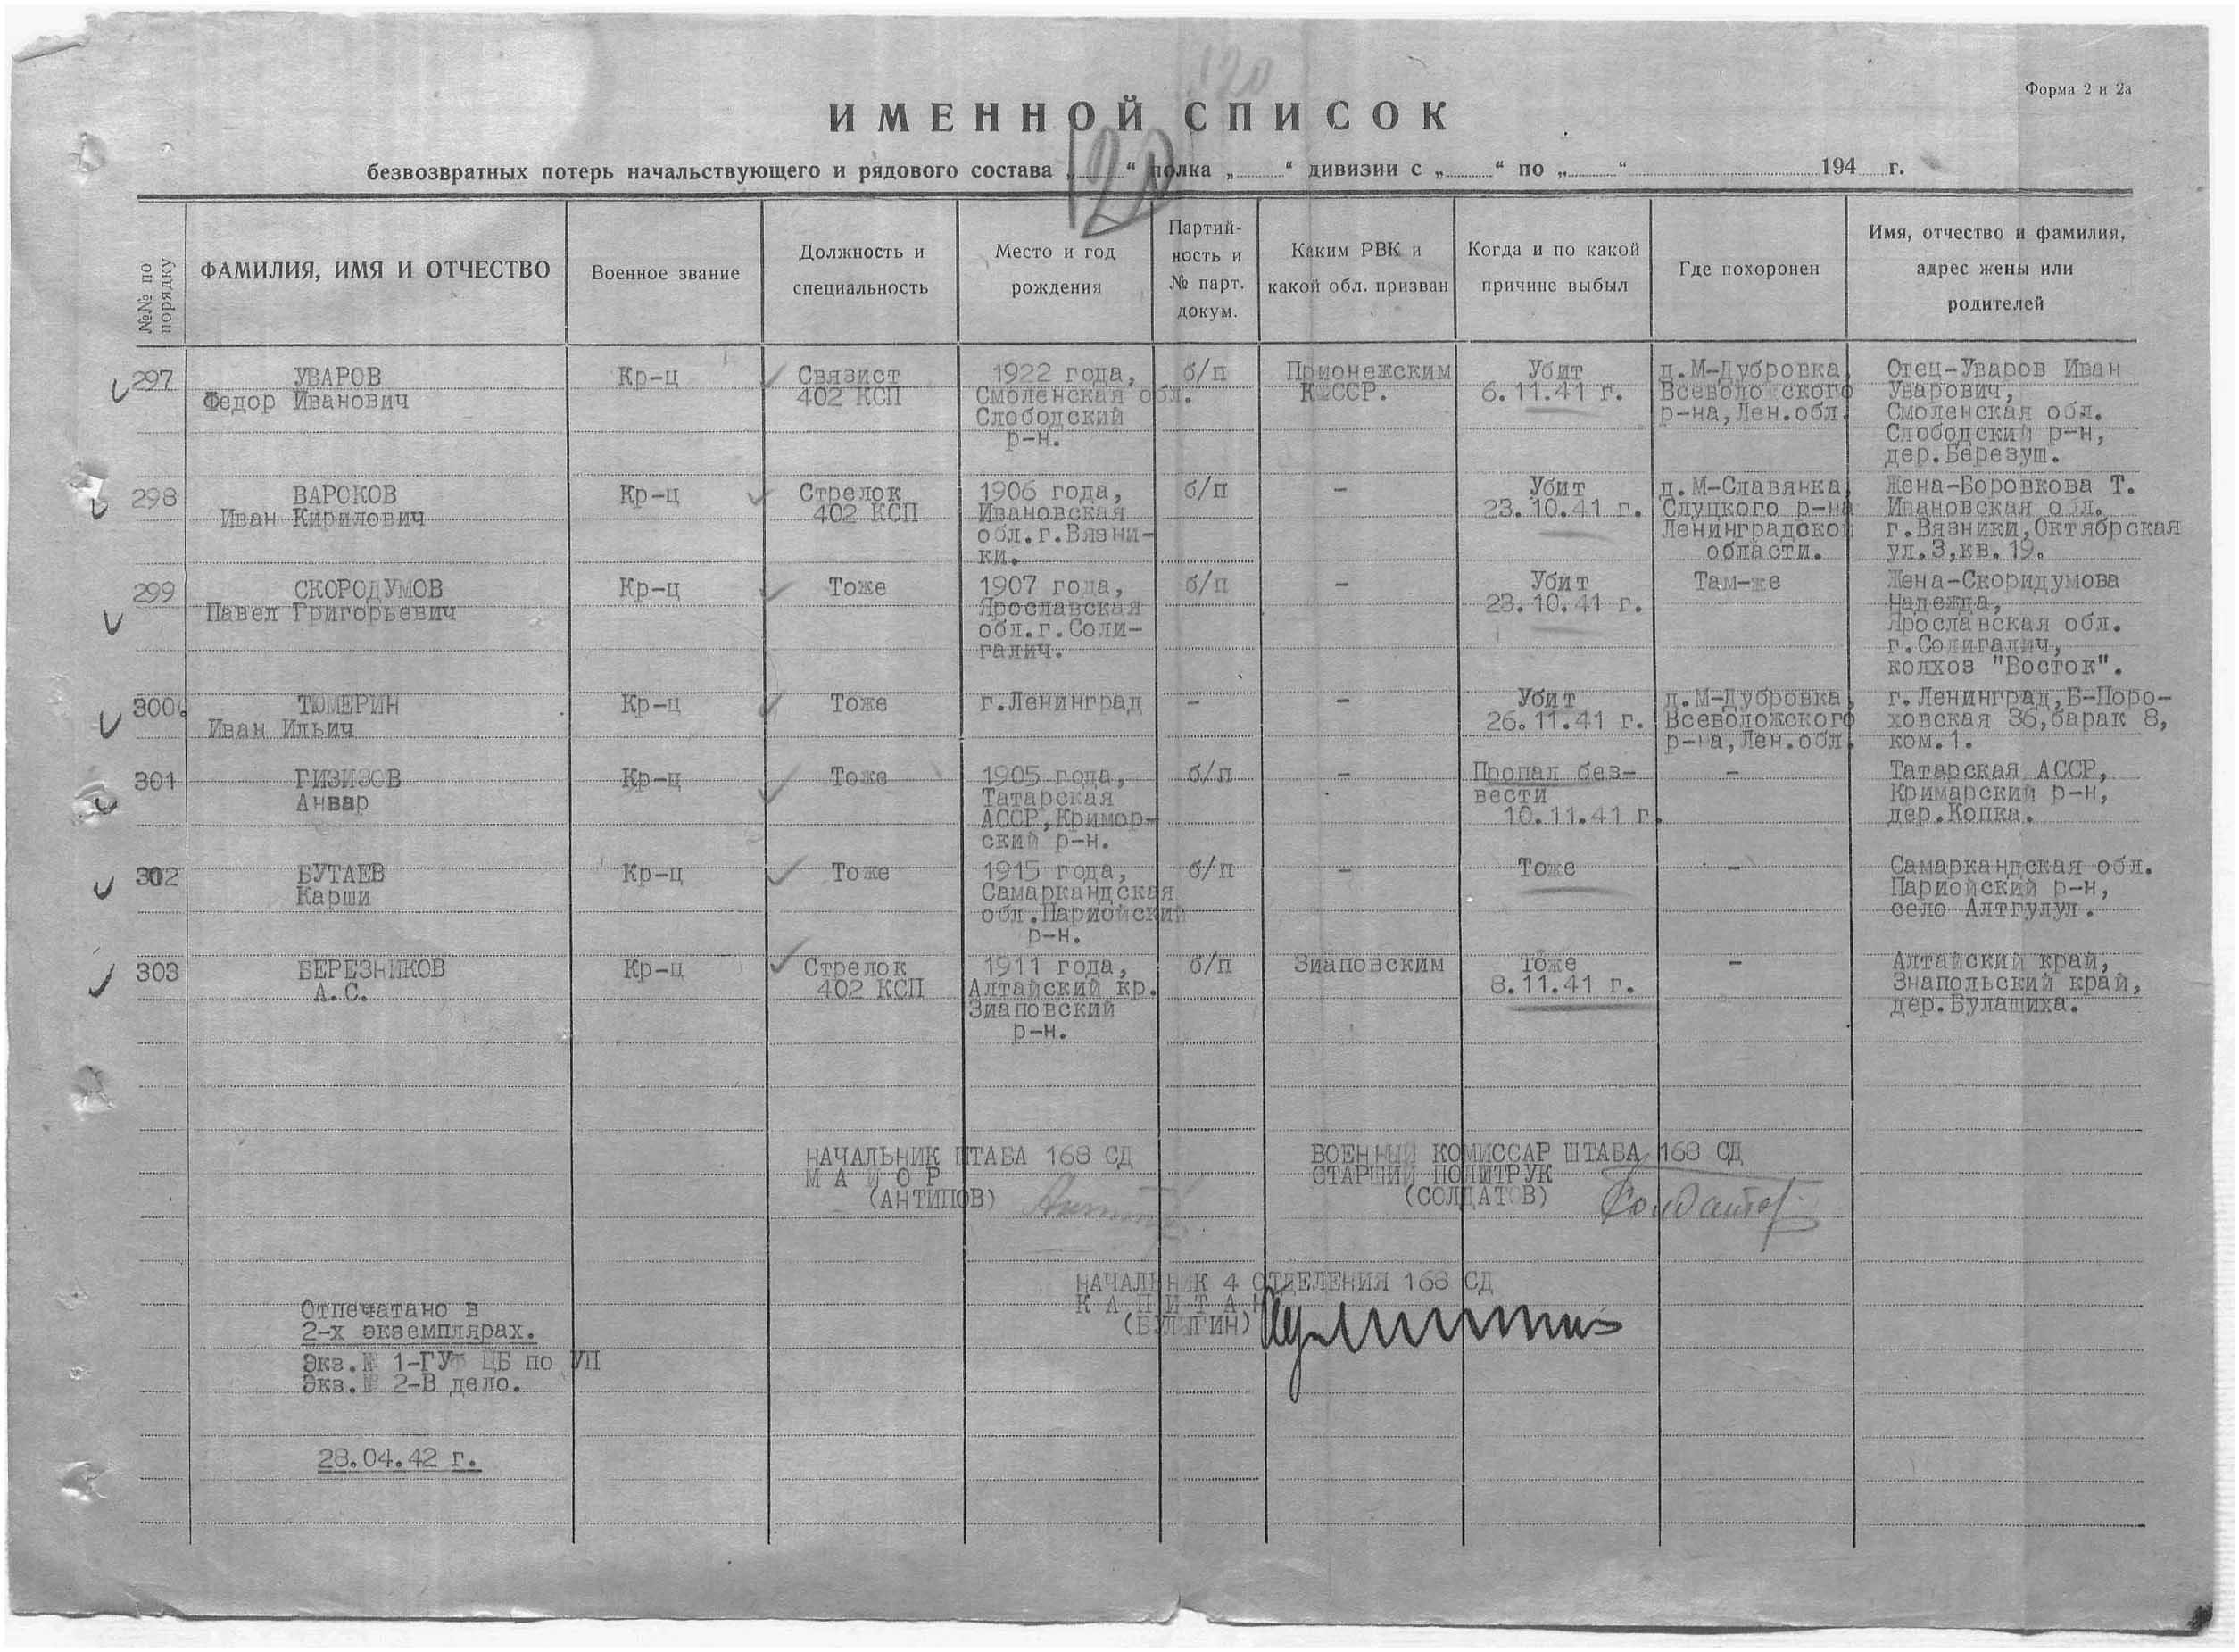 120
Форма 2 и 2а
ИМЕННОЙ СПИСОК
120
безвозвратных потерь начальствующего и рядового состава „ “ полка „ “ дивизии с „ “ по „ “ 194 г.
№№ по порядку
ФАМИЛИЯ, ИМЯ И ОТЧЕСТВО
Военное звание
Должность и
специальность
Место и год
рождения
Партий-
ность и
№ парт.
докум.
Каким РВК и
какой обл. призван
Когда и по какой
причине выбыл
Где похоронен
Имя, отчество и фамилия,
адрес жены или
родителей
297
УВАРОВ
Федор Иванович
Кр-ц
Связист
402 КСП
1922 года,
Смоленская обл.
Слободский
р-н.
б/п
Прионежским
КФССР.
Убит
6.11.41 г.
д.М-Дубровка,
Всеволожского
р-на,Лен.обл.
Отец-Уваров Иван
Уварович,
Смоленская обл.
Слободский р-н,
дер.Березуш.
298
ВАРОКОВ
Иван Кирилович
Кр-ц
Стрелок
402 КСП
1906 года,
Ивановская
обл.г.Вязни-
ки.
б/п
-
Убит
23.10.41 г.
д.М-Славянка,
Слуцкого р-на
Ленинградской
области.
Жена-Боровкова Т.
Ивановская обл.
г.Вязники,Октябрская
ул.3,кв.19.
299
СКОРОДУМОВ
Павел Григорьевич
Кр-ц
Тоже
1907 года,
Ярославская
обл.г.Соли-
галич.
б/п
-
Убит
23.10.41 г.
Там-же
Жена-Скоридумова
Надежда,
Ярославская обл.
г.Солигалич,
колхоз "Восток".
300
ТЮМЕРИН
Иван Ильич
Кр-ц
Тоже
г.Ленинград
-
-
Убит
26.11.41 г.
д.М-Дубровка,
Всеволожского
р-на,Лен.обл.
г.Ленинград,Б-Поро-
ховская 36,барак 8,
ком.1.
301
ГИЗИЗОВ
Анвар
Кр-ц
Тоже
1905 года,
Татарская
АССР,Кримор-
ский р-н.
б/п
-
Пропал без-
вести
10.11.41 г.
-
Татарская АССР,
Кримарский р-н,
дер.Копка.
302
БУТАЕВ
Карши
Кр-ц
Тоже
1915 года,
Самаркандская
обл.Париойский
р-н.
б/п
-
Тоже
-
Самаркандская обл.
Париойский р-н,
село Алтгулул.
303
БЕРЕЗНИКОВ
А.С.
Кр-ц
Стрелок
402 КСП
1911 года,
Алтайский кр.
Зиаповский
р-н.
б/п
Зиаповским
Тоже
8.11.41 г.
-
Алтайский край,
Знапольский край,
дер.Булашиха.
НАЧАЛЬНИК ШТАБА 168 СД
МАЙОР
(АНТИПОВ)
ВОЕННЫЙ КОМИССАР ШТАБА 168 СД
СТАРШИЙ ПОЛИТРУК
(СОЛДАТОВ) Солдатов
НАЧАЛЬНИК 4 ОТДЕЛЕНИЯ 168 СД
КАПИТАН
(БУЛЫГИН)
Отпечатано в
2-х экземплярах.
Экз.№ 1-ГУФ ЦБ по УП
Экз.№ 2-В дело.
28.04.42 г.